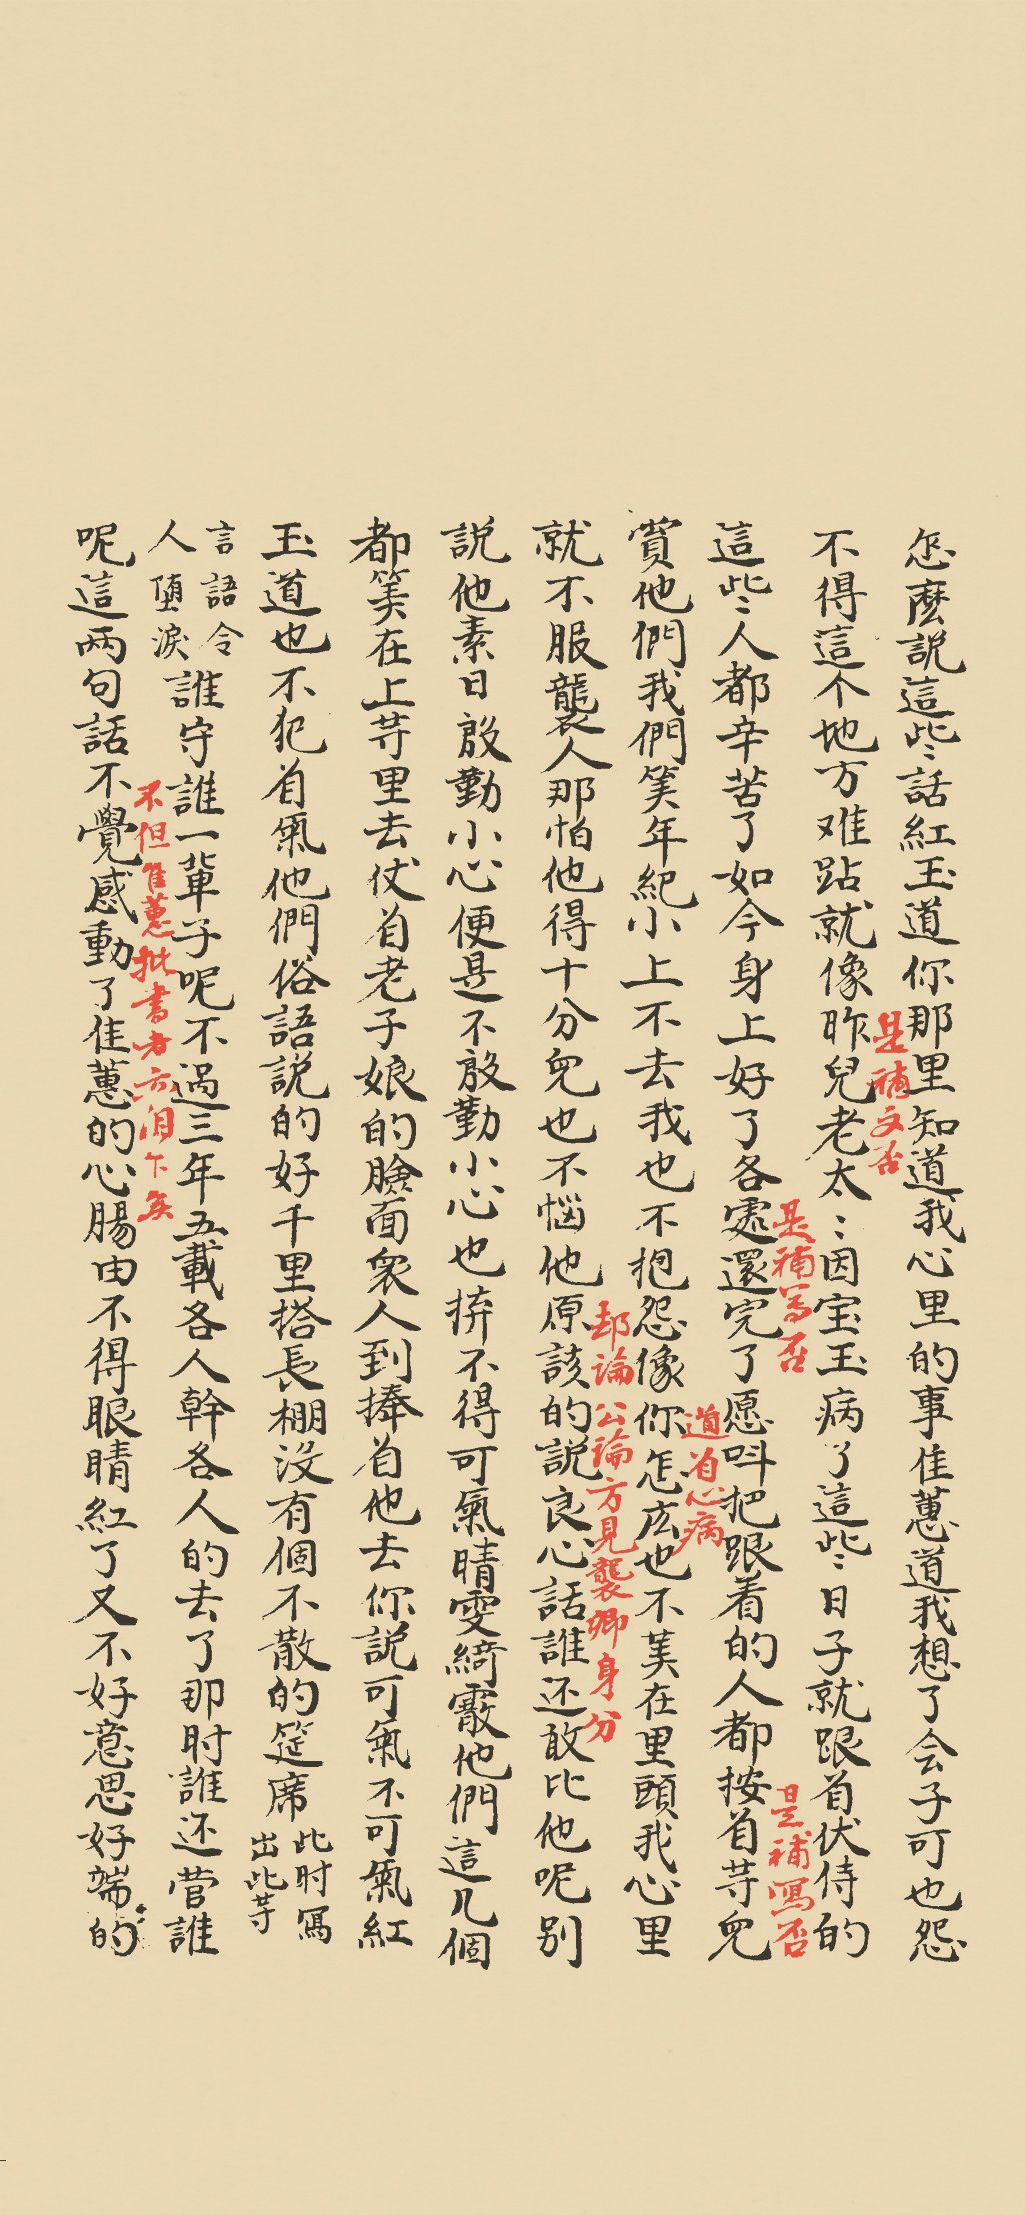 怎麽説這些話紅玉道你那里知道我心里的事佳蕙道我想了会子可也怨
是補文否
不得這个地方难跕就像昨兒老太〻因宝玉病了這些日子就跟着伏侍的
是補寫否
是補寫否
這些人都辛苦了如今身上好了各處還完了愿呌把跟着的人都按着䓁兒
道着心病
賞他們我們筭年紀小上不去我也不抱怨像你怎庅也不筭在里頭我心里
却論公論方見襲卿身分
就不服襲人那怕他得十分兒也不惱他原該的説良心話誰还敢比他呢别
説他素日殷勤小心便是不殷勤小心也拚不得可氣晴雯綺霰他們這几個
都筭在上䓁里去仗着老子娘的臉面衆人到捧着他去你説可氣不可氣紅
玉道也不犯着氣他們俗語説的好千里搭長棚沒有個不散的筵席
此时寫
出此䓁
言語令
人墮淚
誰守誰一輩子呢不過三年五載各人幹各人的去了那时誰还管誰
不但佳蕙批書者亦泪下矣
呢這两句話不覺感動了佳蕙的心腸由不得眼睛紅了又不好意思好端的